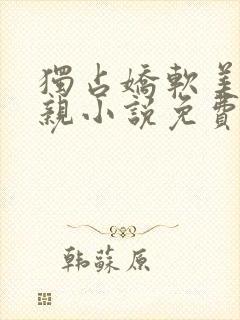 獨占嬌軟美
親小說免費
韩蘇原